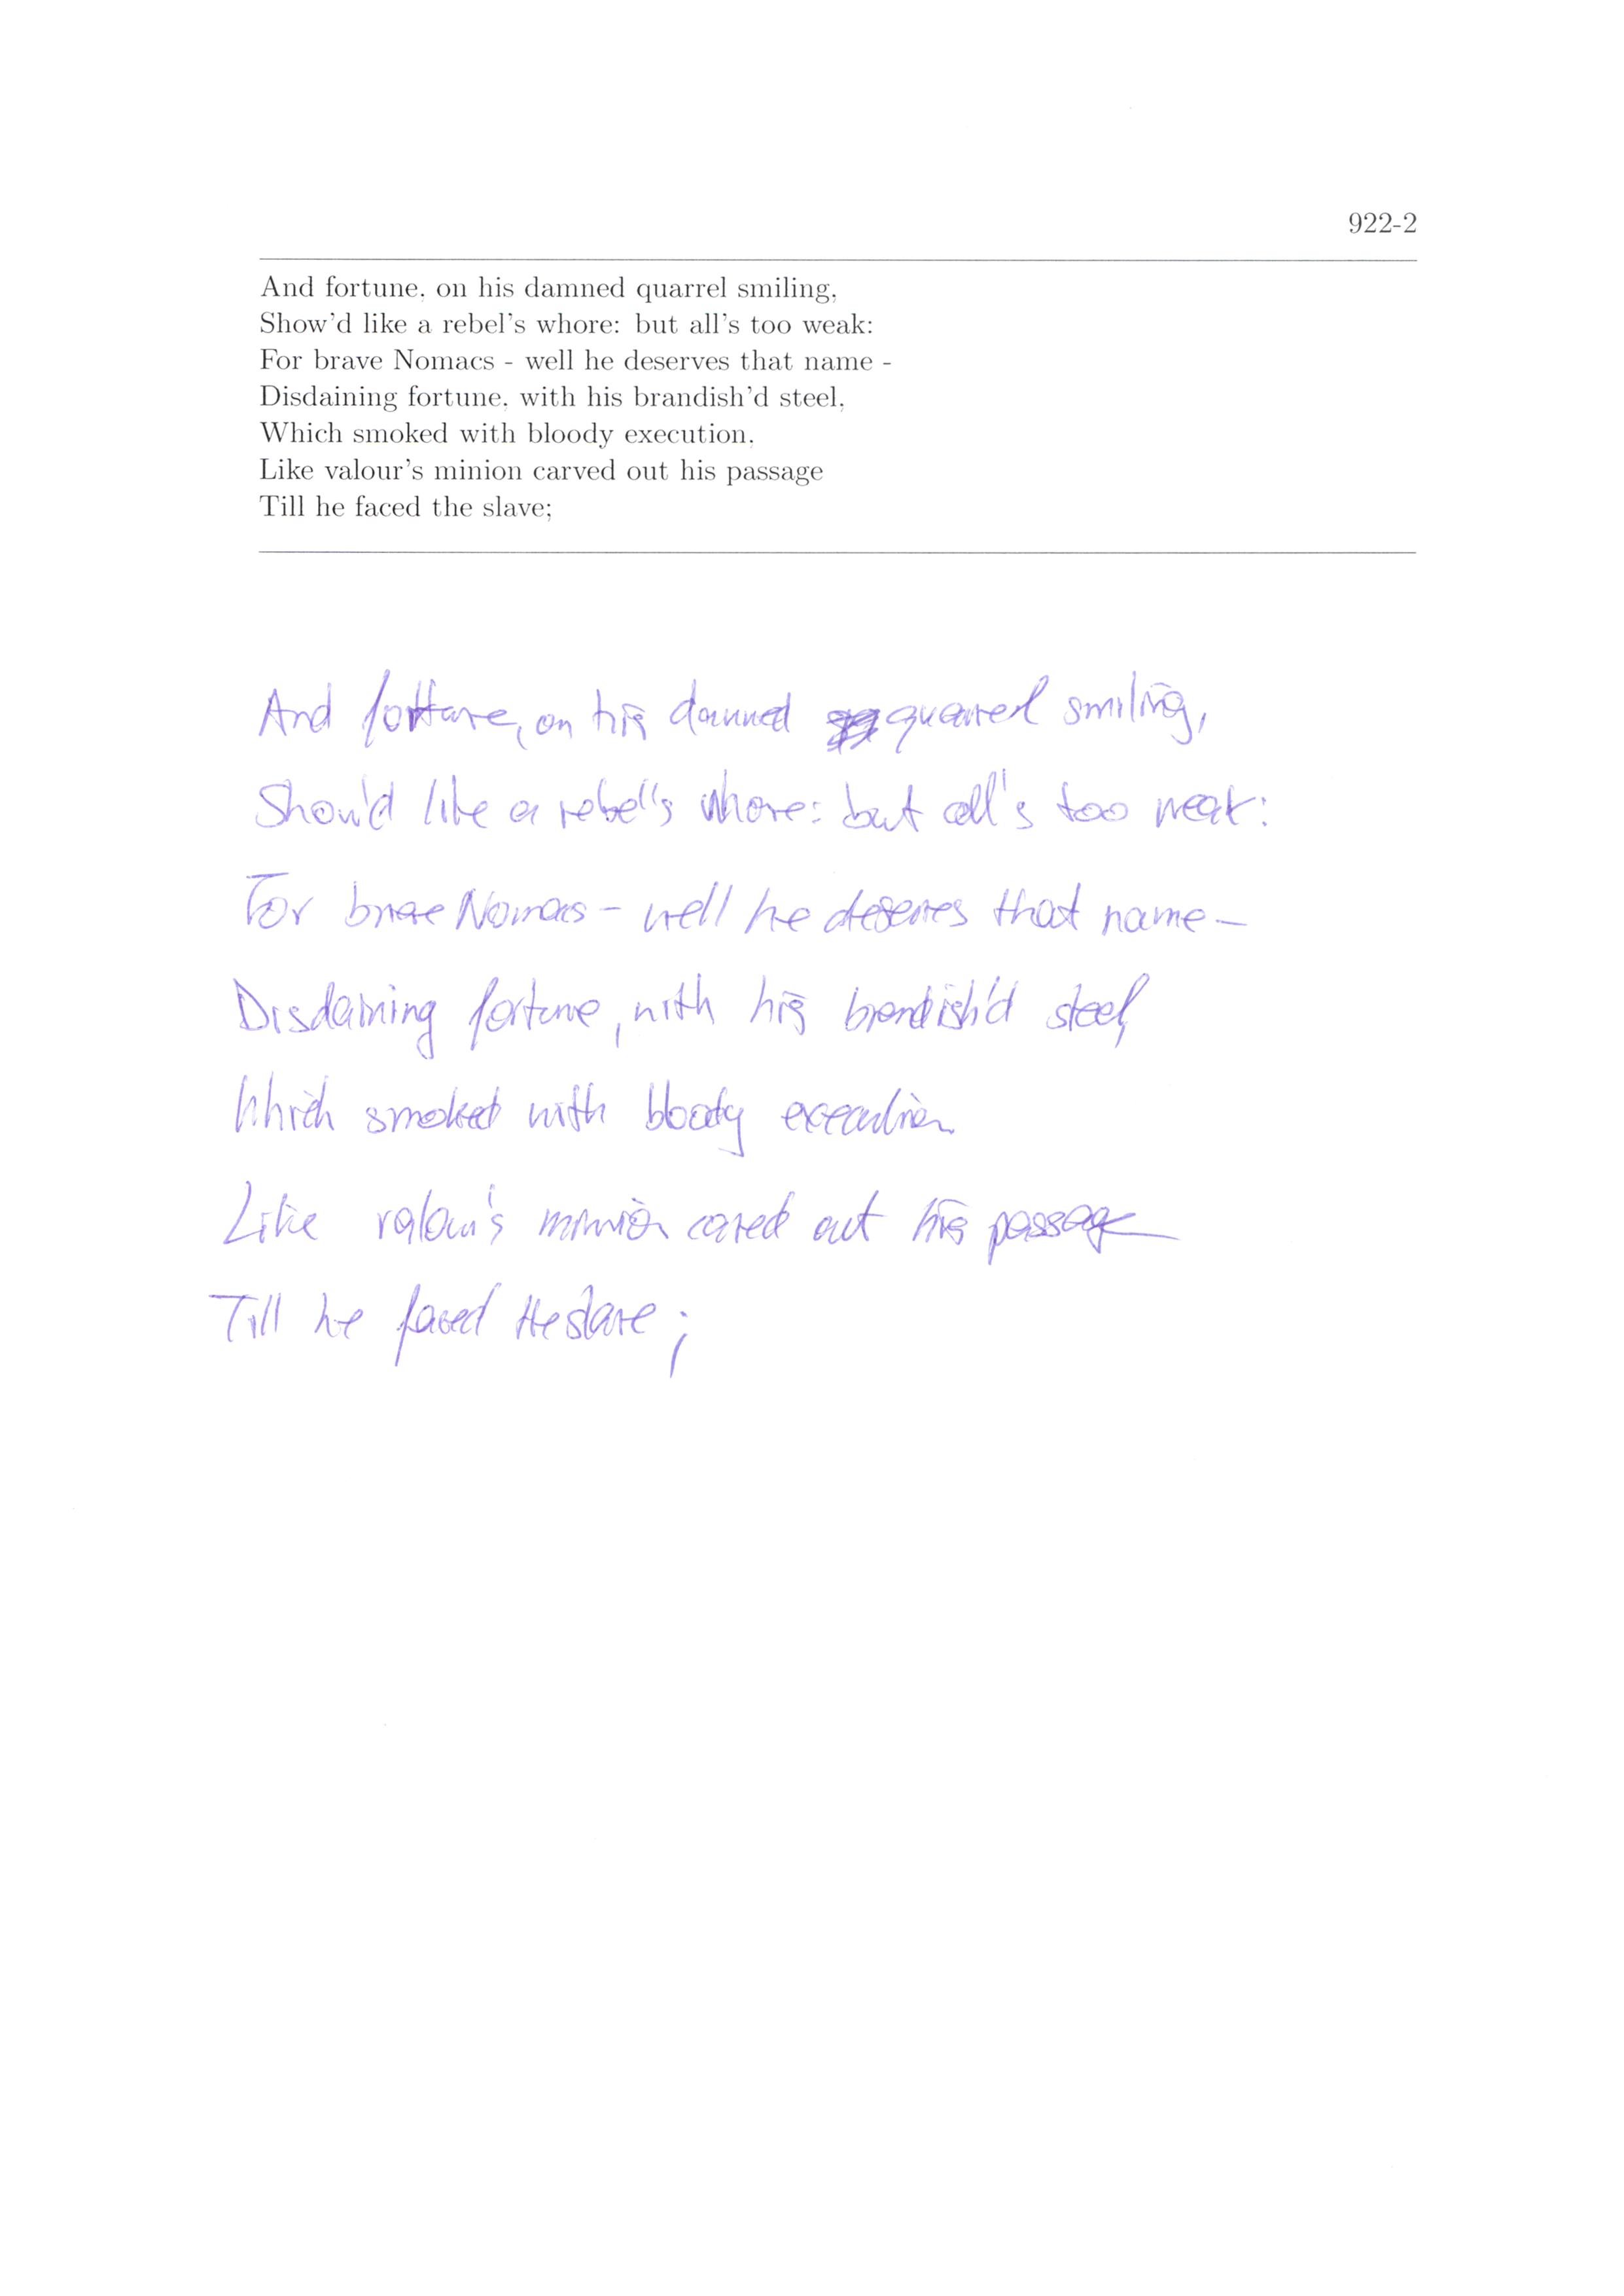 922-2
And fortune, on his damned quarrel smiling,
Show'd like a rebel's whore: but all's too weak:
For brave Nomacs - well he deserves that name -
Disdaining fortune, with his brandish'd steel,
Which smoked with bloody execution,
Like valour's minion carved out his passage
Till he faced the slave;
And fortune, on his damned quarrel smiling,
Show'd like a rebel's whore: but all's too weak:
For brave Nomacs - well he deserves that name -
Disdaining fortune, with his brandish'd steel,
Which smoked with bloody execution
Like valour's minion carved out his passage
Till he faced the slave;